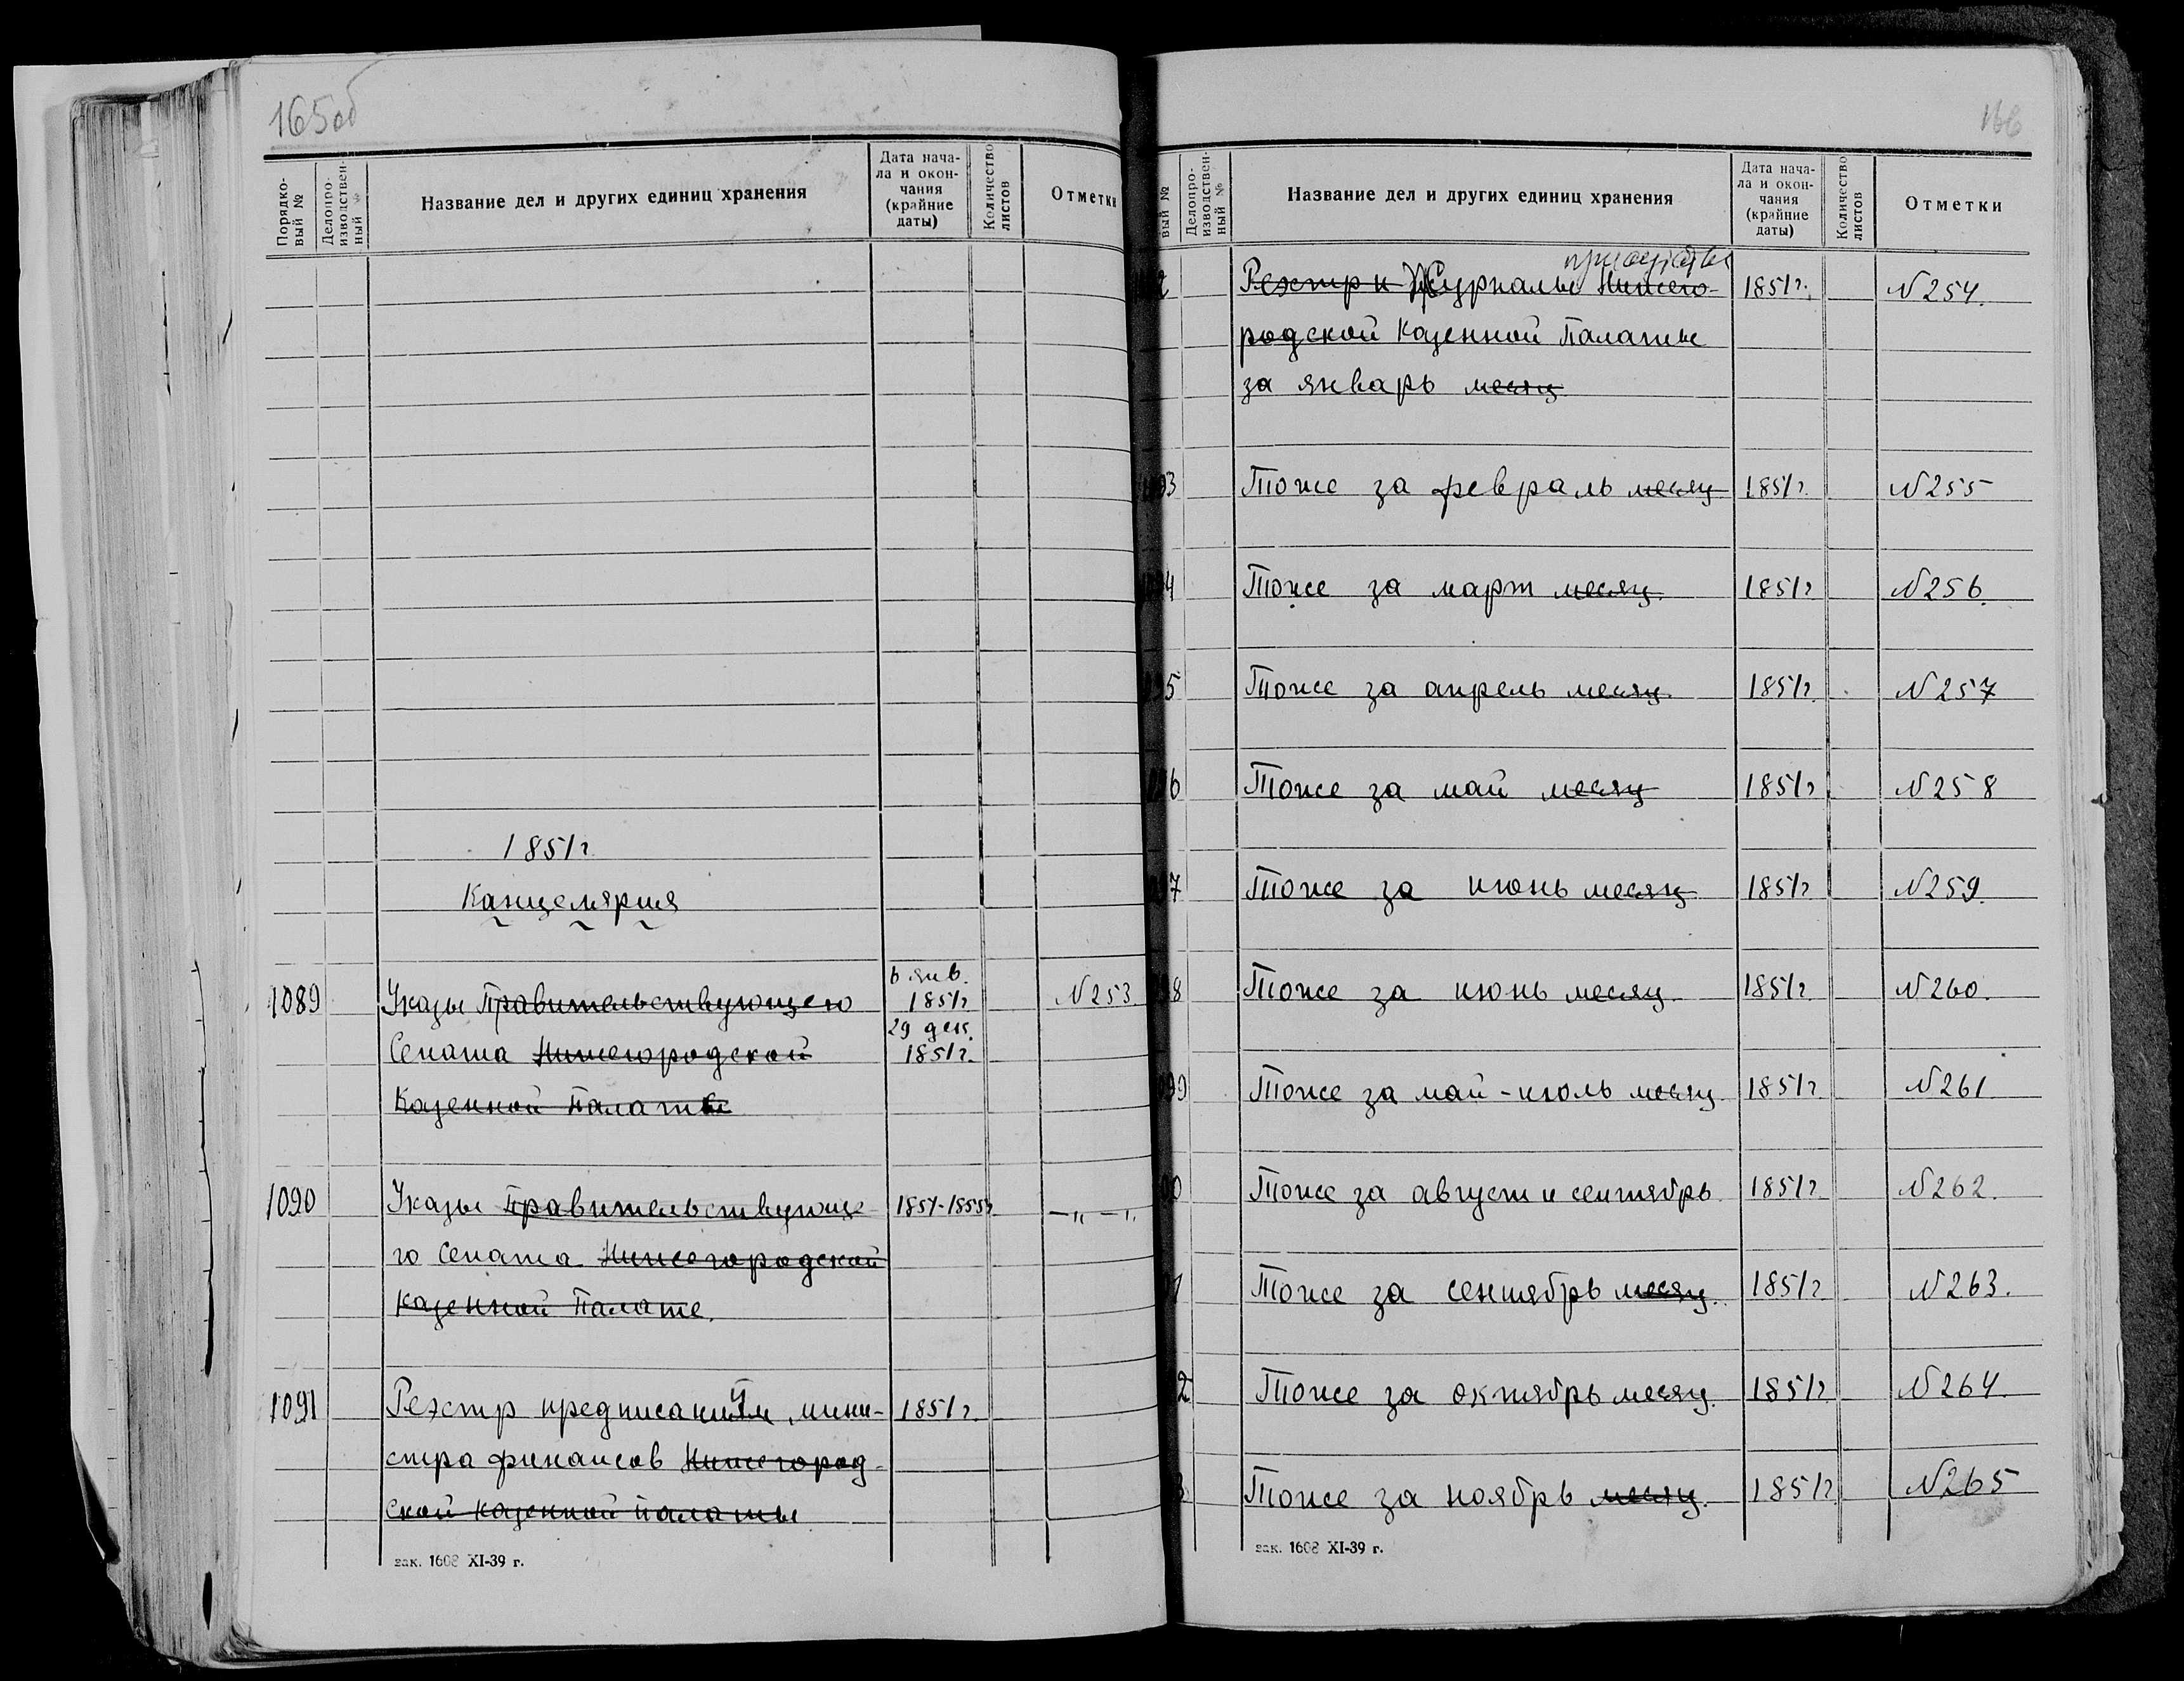 165об
Порядко-
вый №
Делопро-
изводствен-
ный №
Название дел и других единиц хранения
Дата нача-
ла и окон-
чания
(крайние
даты)
Количество
листов
Отметки
1851г.
Канцелярия
1089 Указы Правительствующего 6 янв. 1851г. №253.
Сената Нижегородской 29 дек. 1851г.
Казенной Палаты
1090 Указы Правительствующе- 1851-1855г. —„—„
го Сената Нижегородской
Казенной Палате.
1091 Реэстр предписаний мини- 1851г.
стра финансов Нижегород-
ской казенной палаты
зак. 1608 XI-39 г.
166
вый №
Делопро-
изводствен-
ный №
Название дел и других единиц хранения
Дата нача-
ла и окон-
чания
(крайние
даты)
Количество
листов
Отметки
2 Реэстр и Журналы Нижего- 1851г. №254.
родской Казенной Палаты
за январь месяц
93 Тоже за февраль месяц 1851г. №255
4 Тоже за март месяц 1851г. №256.
95 Тоже за апрель месяц. 1851г. №257
96 Тоже за май месяц 1851г. №258
97 Тоже за июнь месяц 1851г. №259.
98 Тоже за июнь месяц 1851г. №260.
99 Тоже за май-июль месяц. 1851г. №261
00 Тоже за август и сентябрь. 1851г. №262.
1 Тоже за сентябрь месяц. 1851г. №263.
2 Тоже за октябрь месяц. 1851г. №264.
3 Тоже за ноябрь месяц. 1851г. №265
зак. 1608 XI-39 г.